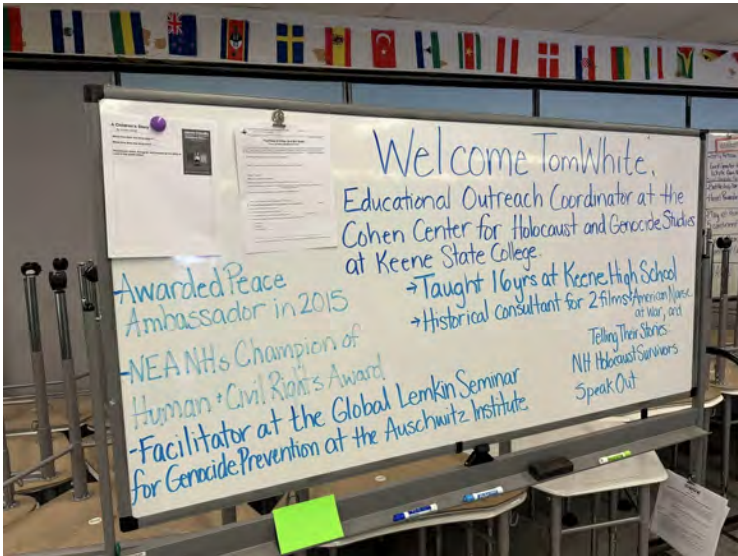 Welcome Tom White,
Educational Outreach Coordinator at the
Cohen Center for Holocaust and Genocide Studies
at Keene State College.
→Taught 16yrs at Keene High School
→Historical consultant for 2 films: American Nurse
at War, and
Telling Their Stories:
NH Holocaust Survivors
Speak Out
-Awarded Peace
Ambassador in 2015
-NEA NHs Champion of
Human + Civil Rights Award
-Facilitator at the Global Lemkin Seminar
for Genocide Prevention at the Auschwitz Institute